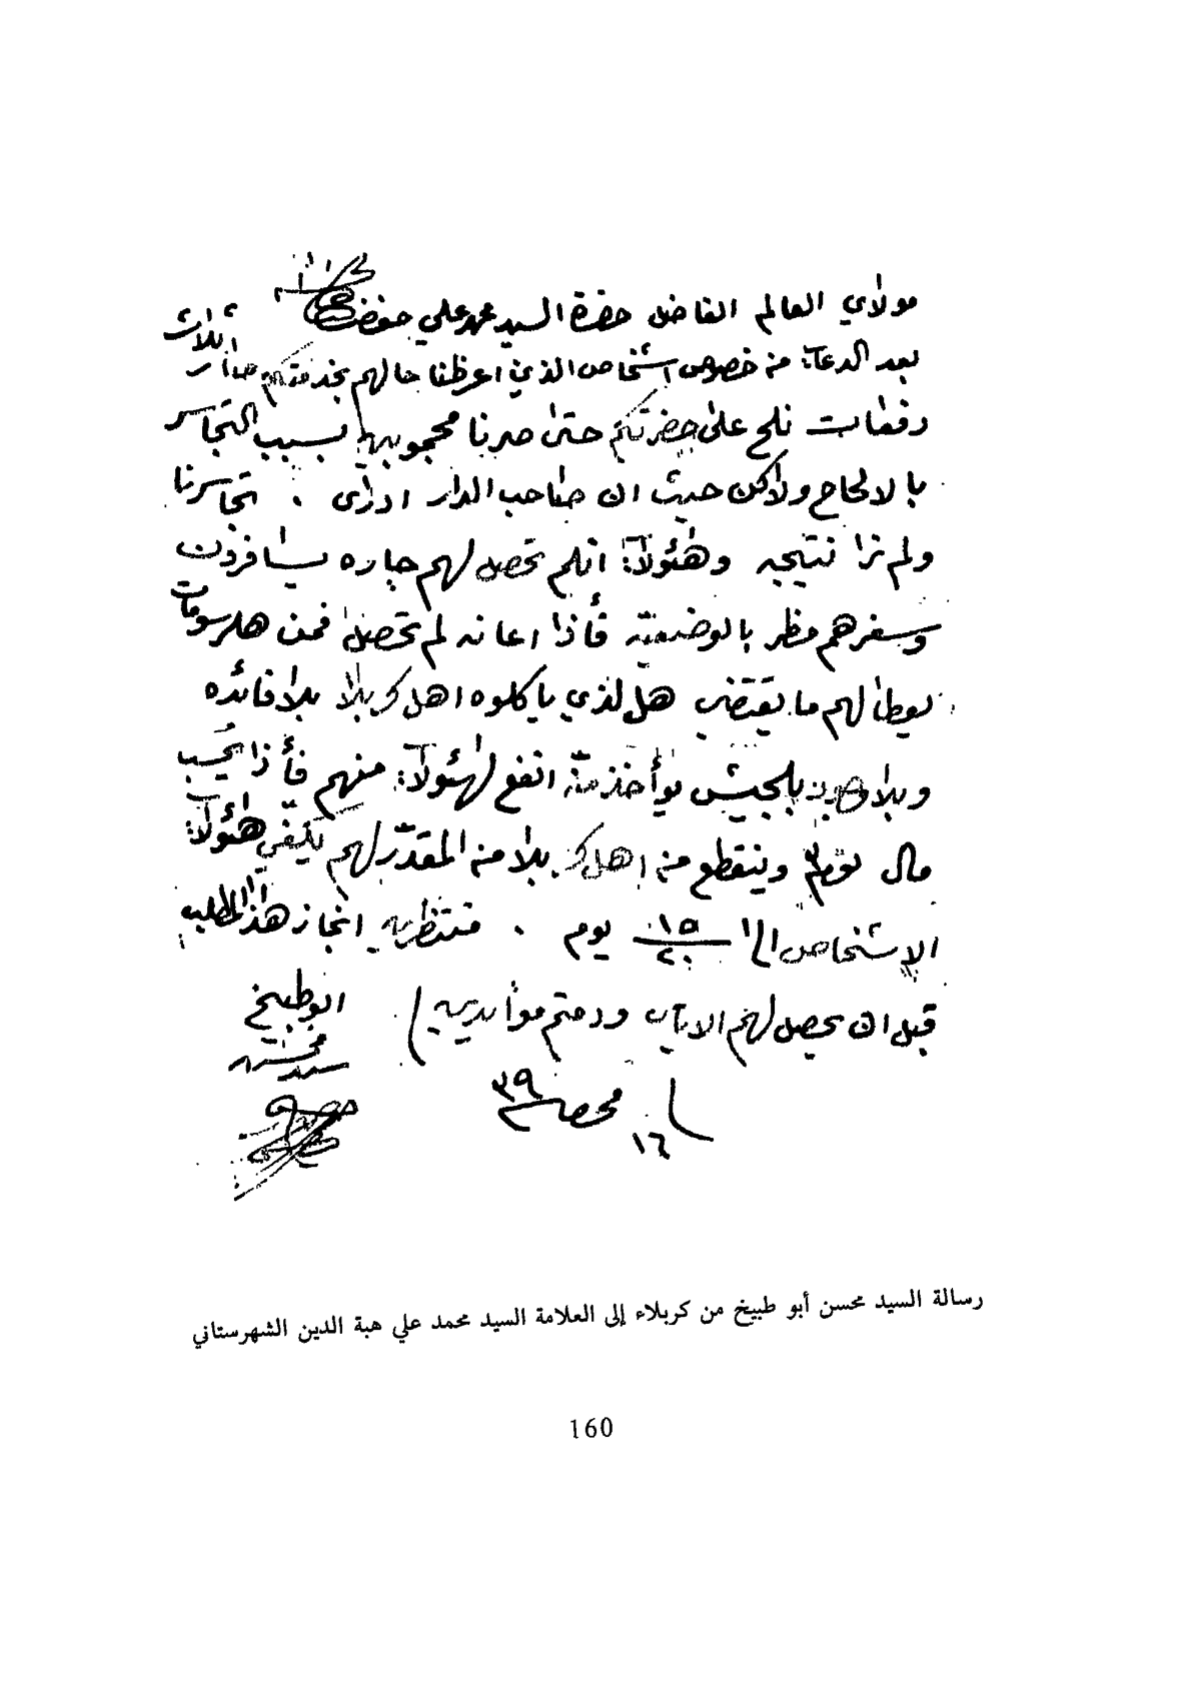 مولاي العالم الفاضل حضرة السيد محمد علي
بعد الدعاء من خصوص اشخاص الذي اعرظنا حالهم بخدمتكم صار اثلاث
دفعات نلح على حضرتكم حتى صرنا محجوبين بسبب التجاسر
بالالحاح ولاكن حيث ان صاحب الدار ادرى . تجاسرنا
ولم نرا نتيجه وهئولاء انلم تحصل لهم چاره يسافرون
وسفرهم مظر بالوضعيه فأذا اعانه لم تحصل فمن هلرسومات
يعطا لهم ما يقتضي هل لذي ياكلوه اهل كربلا بلا فائده
وبلا بلجيش انفع لهئولاء منهم فأذا يحسب
مال يوم وينقطع من اهل كربلا من المقدر لهم يكفي هئولاء
الاشخاص الى ١٥ ٢٠ يوم . منتظرين انجاز هذا المطلب
قبل ان يحصل لهم الاياب ودمتم موأيدين
ابوطبيخ
سيد محسن
١٦ محرم ٣٩
رسالة السيد محسن أبو طبيخ من كربلاء إلى العلامة السيد محمد علي هبة الدين الشهرستاني
160